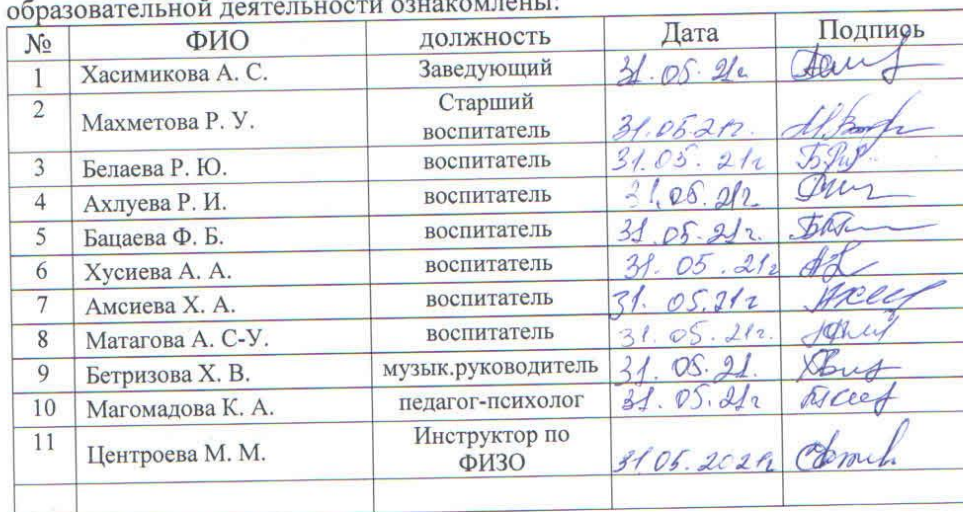 образовательной деятельности ознакомлены:
№ ФИО должность Дата Подпись
1 Хасимикова А. С. Заведующий 31.05.21г
2 Махметова Р. У. Старший воспитатель 31.05.21г.
3 Белаева Р. Ю. воспитатель 31.05.21г
4 Ахлуева Р. И. воспитатель 31.05.21г.
5 Бацаева Ф. Б. воспитатель 31.05.21г.
6 Хусиева А. А. воспитатель 31.05.21г
7 Амсиева Х. А. воспитатель 31.05.21г
8 Матагова А. С-У. воспитатель 31.05.21г.
9 Бетризова Х. В. музык.руководитель 31.05.21.
10 Магомадова К. А. педагог-психолог 31.05.21г
11 Центроева М. М. Инструктор по ФИЗО 31.05.2021г